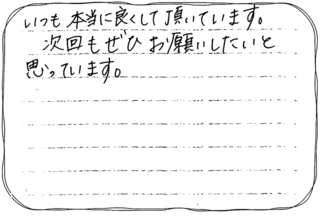 いつも本当に良くして頂いています。
次回もぜひお願いしたいと
思っています。